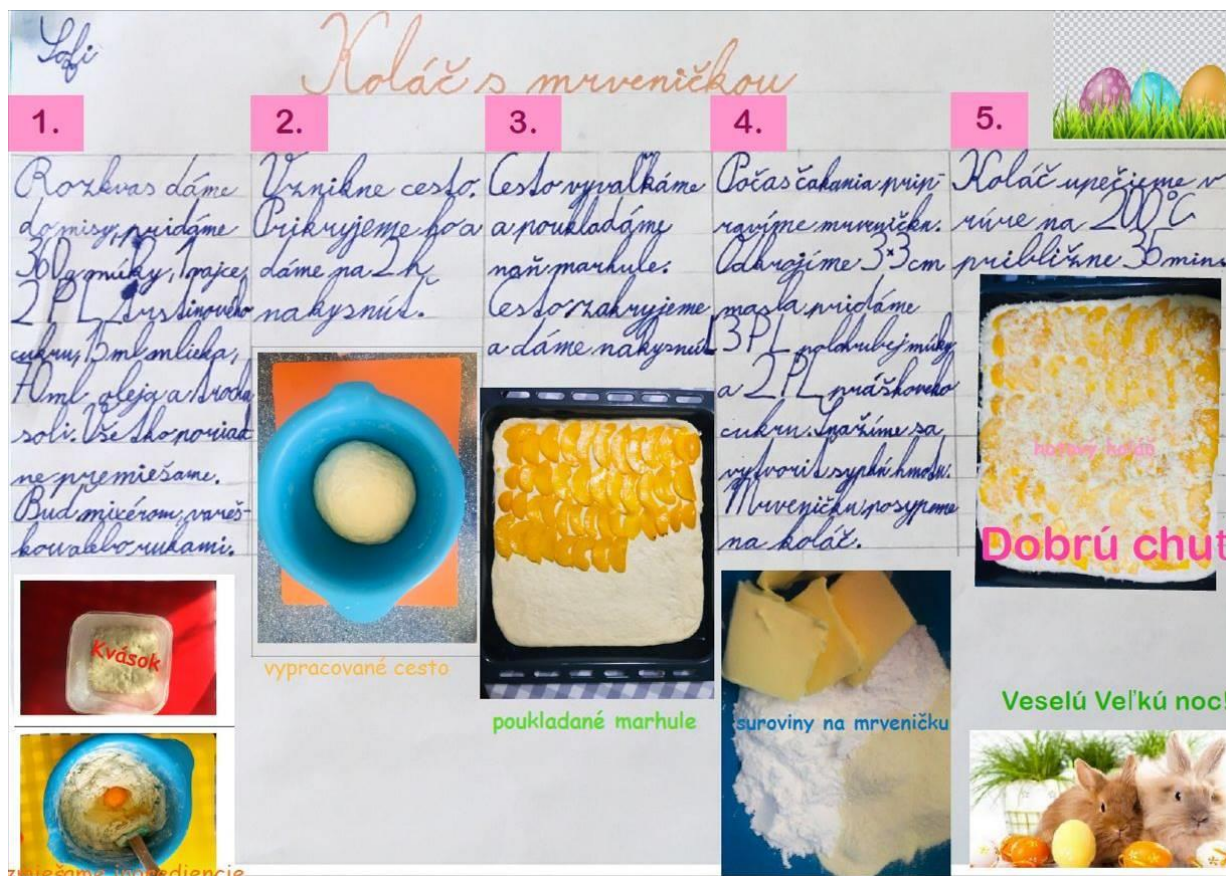 Sofi
Koláč s mrveničkou
1.
Rozkvas dáme
do misy, pridáme
360g múky, 1 vajce,
2 PL trstinového
cukru, 15 ml mlieka,
70ml oleja a trocha
soli. Všetko poriad
ne premiešame.
Buď mixérom, vareš-
kou alebo rukami.
Kvások
zmiešame ingrediencie
2.
Vznikne cesto.
Prikryjeme ho a
dáme na 2 h
nakysnúť.
vypracované cesto
3.
Cesto vyvaľkáme
a poukladáme
naň marhule.
Cesto zakryjeme
a dáme nakysnúť
poukladané marhule
4.
Počas čakania prip-
ravíme mrveničku.
Odkrojíme 3×3 cm
masla pridáme
3 PL polohrubej múky
a 2 PL práškového
cukru. Snažíme sa
vytvoriť sypkú hmotu.
Mrveničku posypeme
na koláč.
suroviny na mrveničku
5.
Koláč upečieme v
rúre na 200°C
približne 36 min
hotový koláč
Dobrú chuť
Veselú Veľkú noc!